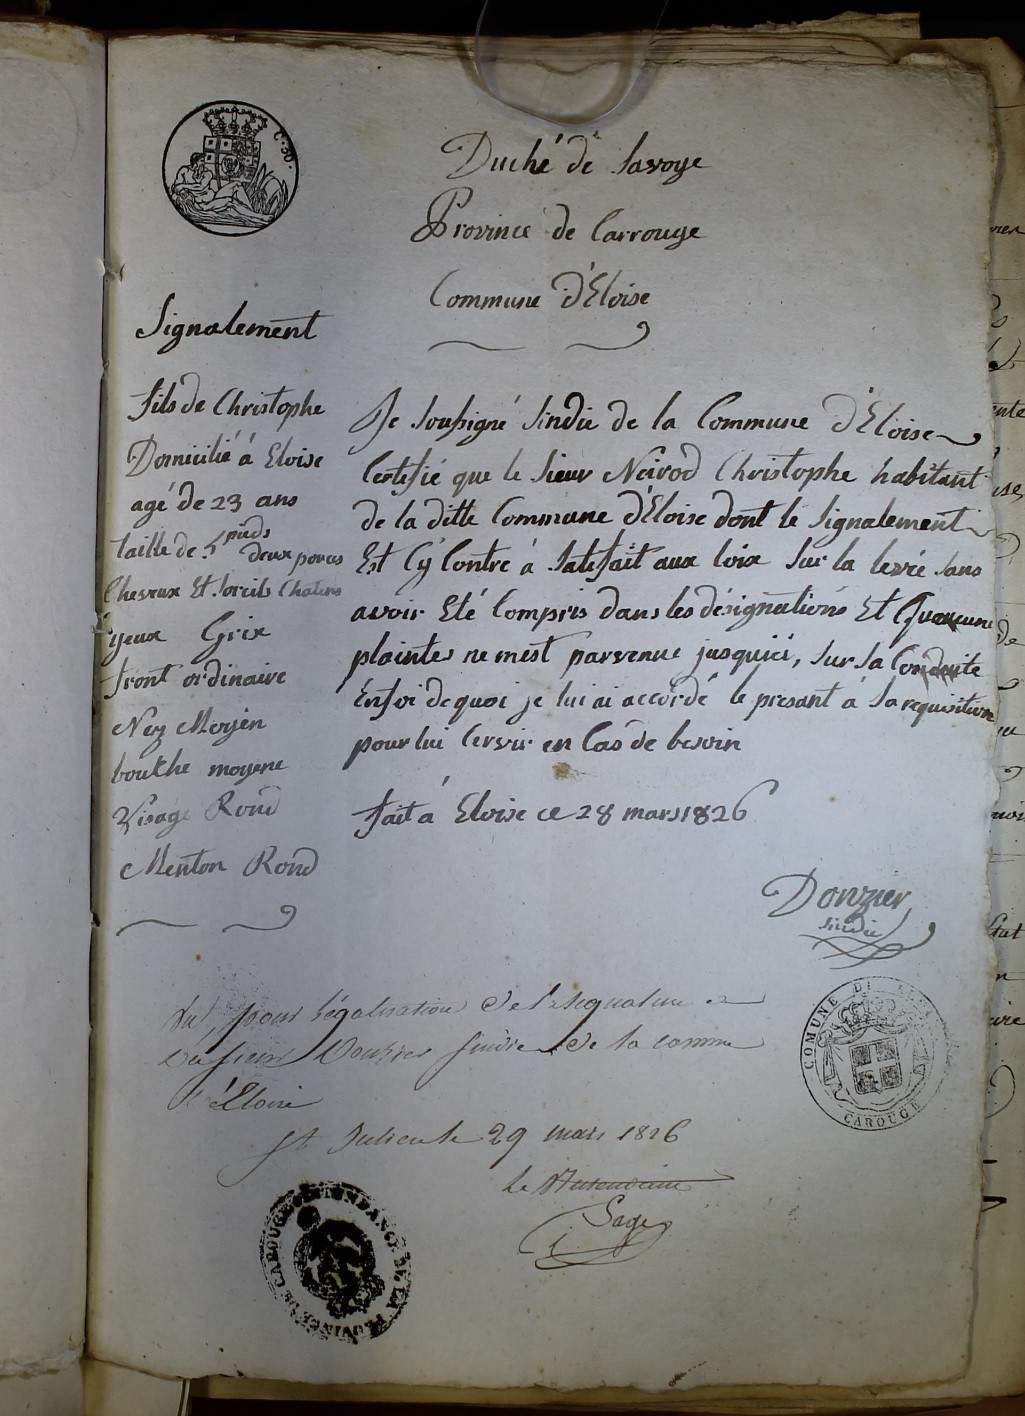 C. 30.
Duché de Savoye
Province de Carrouge
Commune d'Eloise
Signalement
fils de Christophe
Domicilié à Eloise
agé de 23 ans
taille de 5 pieds deux pouces
Cheveux Et Sorcils Chatins
yeux Grix
front ordinaire
Nez Moyèn
bouche moyene
Visage Rond
Menton Rond
Je Soussigné Sindic de la Commune d'Eloise
Certifié que le Sieur Neirod Christophe habitant
de la ditte Commune d'Eloise dont le Signalement
Est Cy Contre à Satisfait aux loix Sur la levée Sans
avoir Eté Compris dans les désignations Et Quaucune
plaintes ne mest parvenue jusquici, Sur Sa Conduite
Enfoi de quoi je lui ai accordé le presant à Sa requisition
pour lui Cervir en Cas de besoin
fait à Eloise ce 28 mars 1826
Donzier
Sindic
Vu, pour légalisation de la Signature
du Sieur Donzier Sindic de la comme
d'Eloise
St Julien le 29 mars 1826
Sage
COMUNE DI
CAROUGE
INTENDANCE DE LA PROVINCE DE CAROUGE